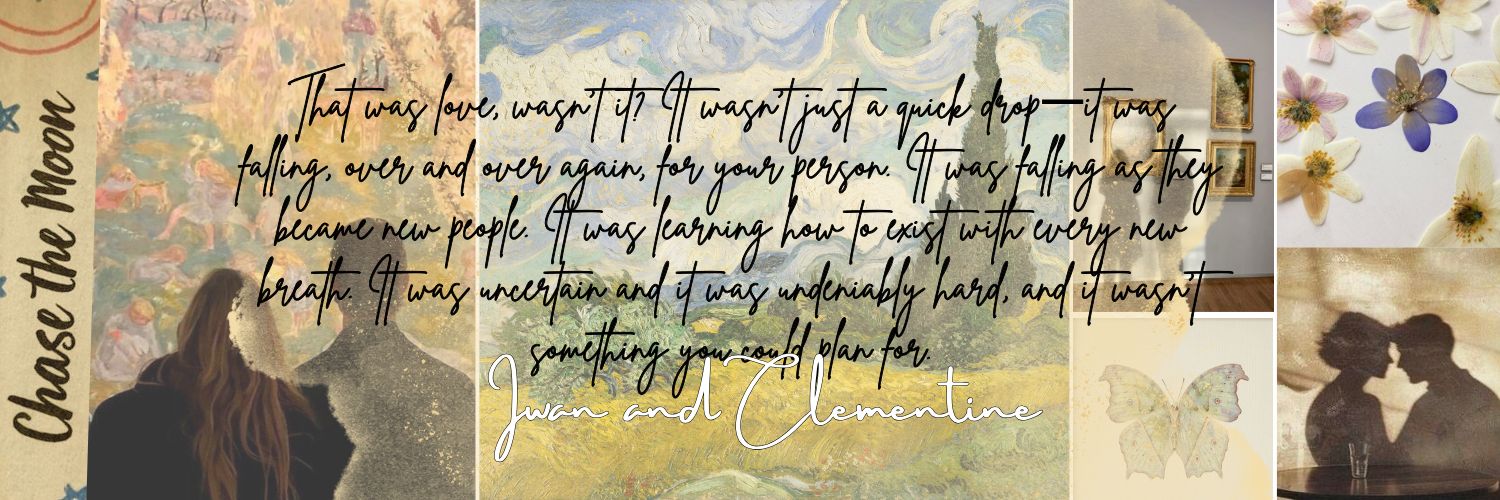 Chase the Moon
That was love, wasn't it? It wasn't just a quick drop—it was
falling, over and over again, for your person. It was falling as they
became new people. It was learning how to exist with every new
breath. It was uncertain and it was undeniably hard, and it wasn't
something you could plan for.
Iwan and Clementine